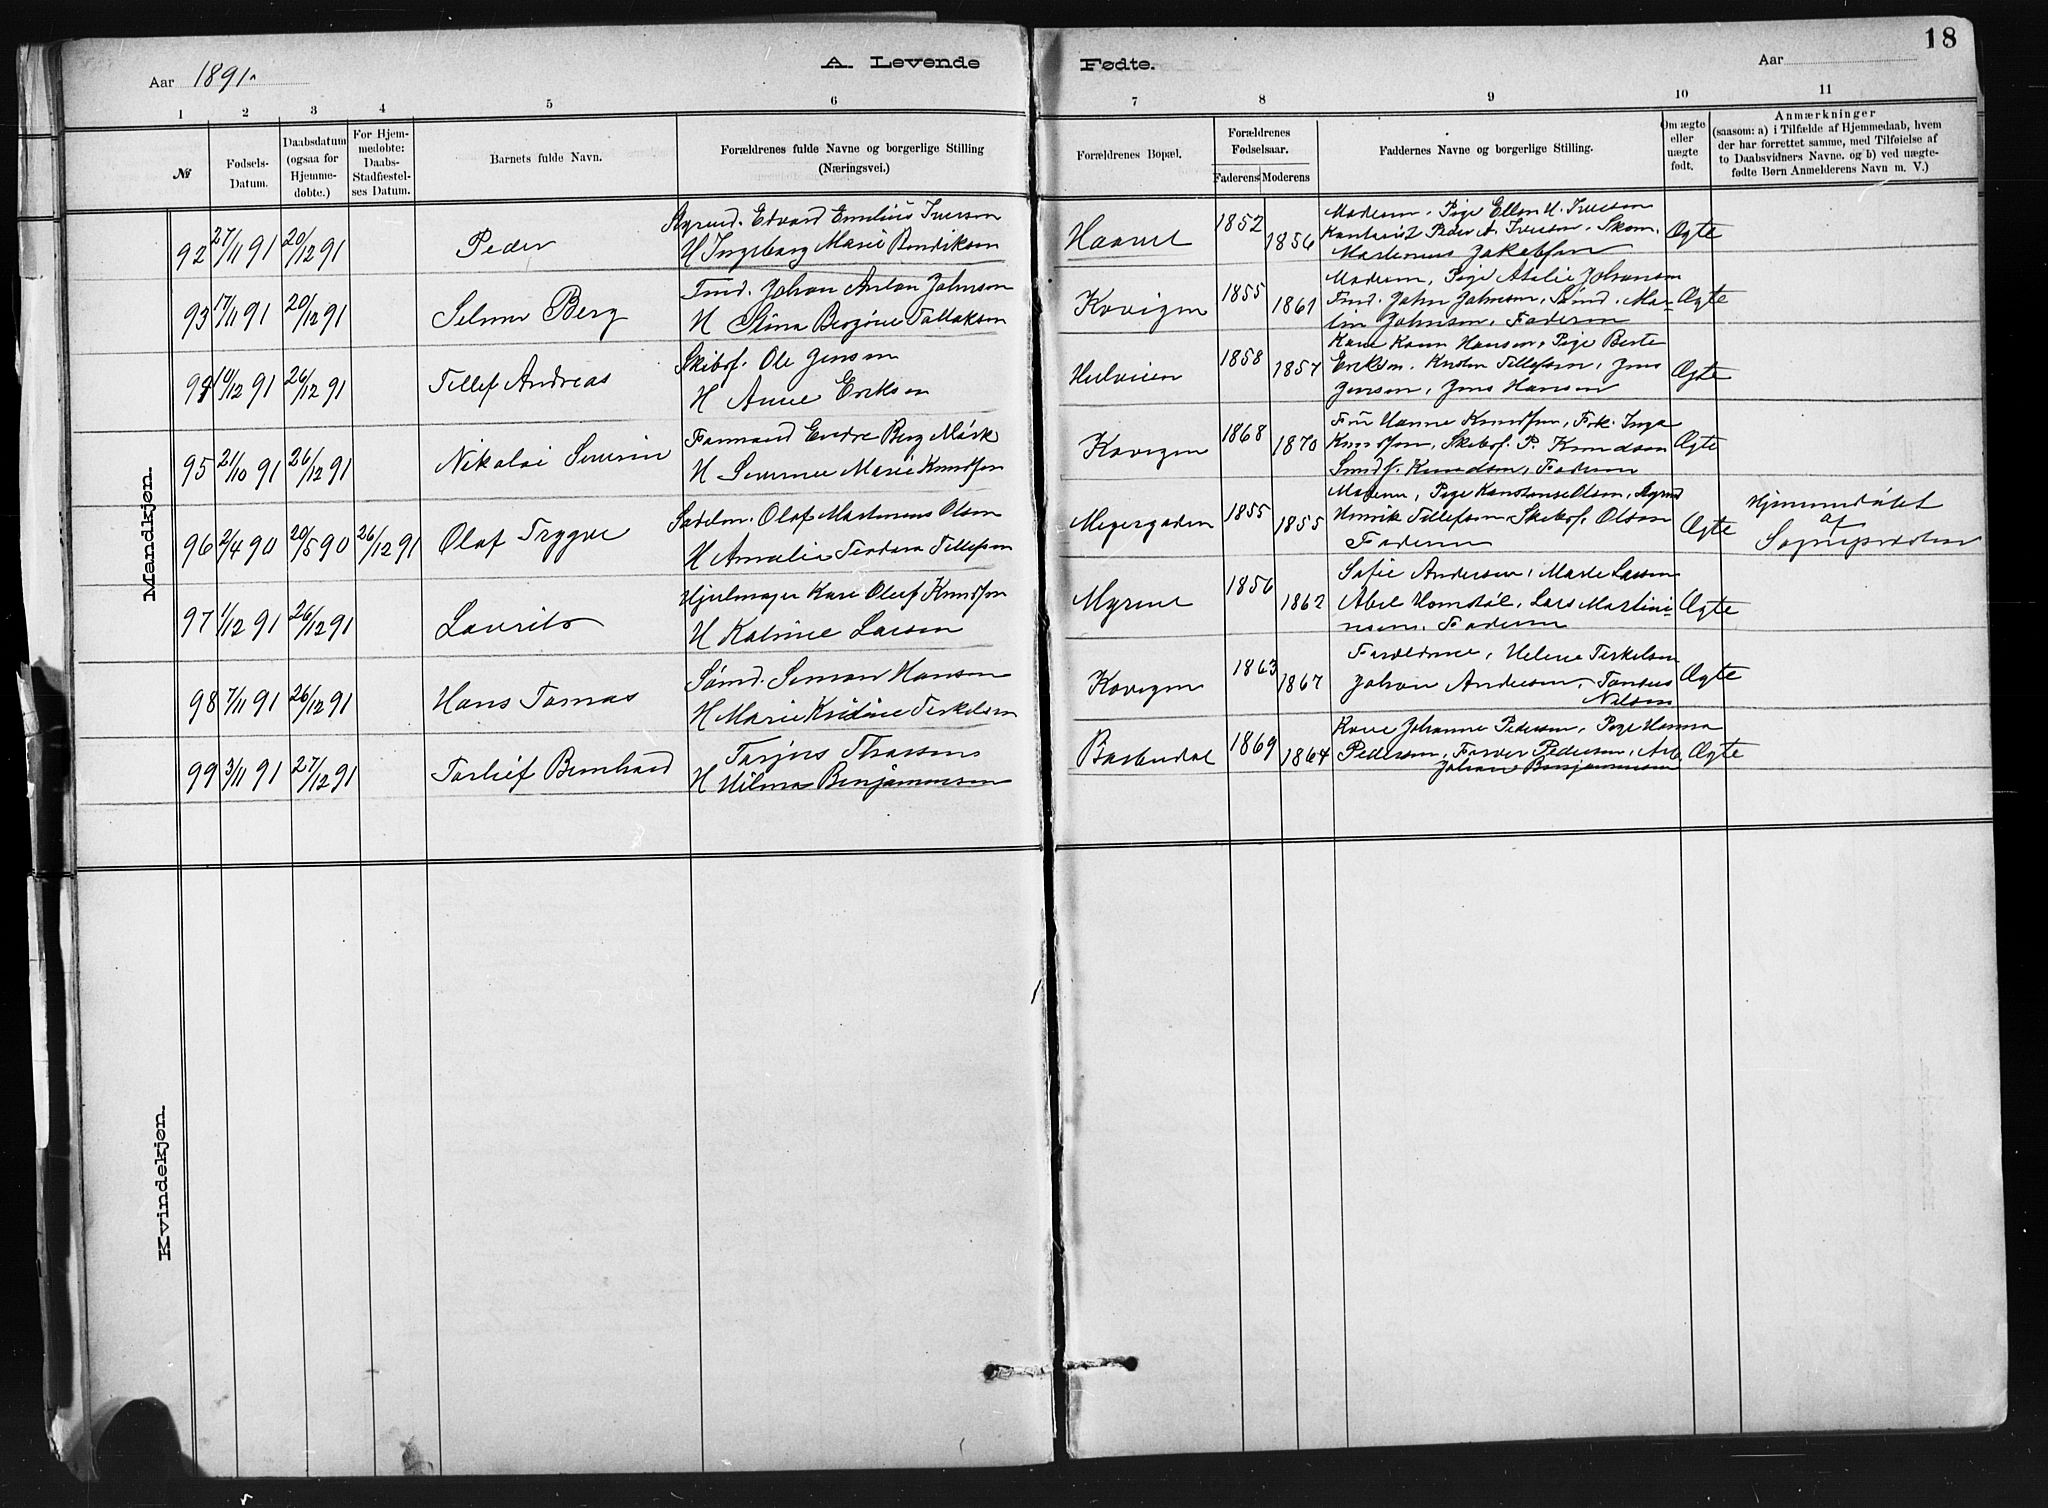 18
Aar 1891.
A. Levende Fødte.
Aar
1 2 3 4 5 6 7 8 9 10 11
№
Fødsels-Datum.
Daabsdatum (ogsaa for Hjemme-døbte.)
For Hjem-medøbte: Daabs-Stadfæstel-ses Datum.
Barnets fulde Navn.
Forældrenes fulde Navne og borgerlige Stilling (Næringsvei.)
Forældrenes Bopæl.
Forældrenes Fødselsaar.
Faderens Moderens
Faddernes Navne og borgerlige Stilling.
Om ægte eller uægte født.
Anmærkninger
(saasom: a) i Tilfælde af Hjemmedaab, hvem
der har forrettet samme, med Tilføielse af
to Daabsvidners Navne. og b) ved uægte-
fødte Børn Anmelderens Navn m. V.)
Mandkjøn.
92 27/11 91 20/12 91 Peder
Edvard Emilius Iverson
H Ingeborg Marie Bendikson
1852 1856
Moderen, Pige Ellen H. Iverson
Peder A. Iverson, Skom.
Martinius Jakobsen
Ægte
93 17/11 91 20/12 91 Selmer Berg
Tmd. Johan Anton Johnson
H Stina Bergine Tallakson
Kovigen 1855 1861
Moderen, Pige Atalie Johanson
Tmd. John Johnson, Sømd. Mar-
tin Johnson, Faderen
Ægte
94 10/12 91 26/12 91 Tellef Andreas
Skibsf. Ole Jenson
H Anne Erikson
1858 1857
Kone Karen Hanson, Pige Berte
Erikson, Tellefsen, Jens
Jenson, Jens Hanson
Ægte
95 21/10 91 26/12 91 Nikolai Severin
Endre Berg Mørk
H Severine Marie Knudsen
Kovigen 1868 1870
Fru Hanne Knudsen, Frk. Inga
Knudsen, Skibsf. P. Knudson
Knudson, Faderen
Ægte
96 2/4 90 20/5 90 26/12 91 Olaf Trygve
Sadelm. Olaf Martinius Olson
H Amalie Teodora Tellefson
Meyergaden 1855 1855
Moderen, Pige Konstanse Olson,
Henrik Tellefson, Skibsf. Olson
Faderen
Ægte
Hjemmedøbt
af
Sognepræsten
97 1/12 91 26/12 91 Laurits
Hjulmager Kare Oluf Knudsen
H Katrine Larson
Myrene 1856 1862
Sofie Anderson, Marie Larson
Abel Homdal, Lars Martini-
usen, Faderen
Ægte
98 7/11 91 26/12 91 Hans Tomas
Sømd. Simon Hanson
H Marie Kristine Terkelsen
Kovigen 1863 1867
Forældrene, Helene Terkelsen
Johan Anderson,
Nilson
Ægte
99 3/11 91 27/12 91 Torleif Bernhard
Tarjus Thorson
H Hilma Benjaminson
1869 1864
Kone Johanne Pederson, Pige Hanna
Pederson, Farver Pederson, Arb.
Johan Benjaminson
Ægte
Kvindekjøn.